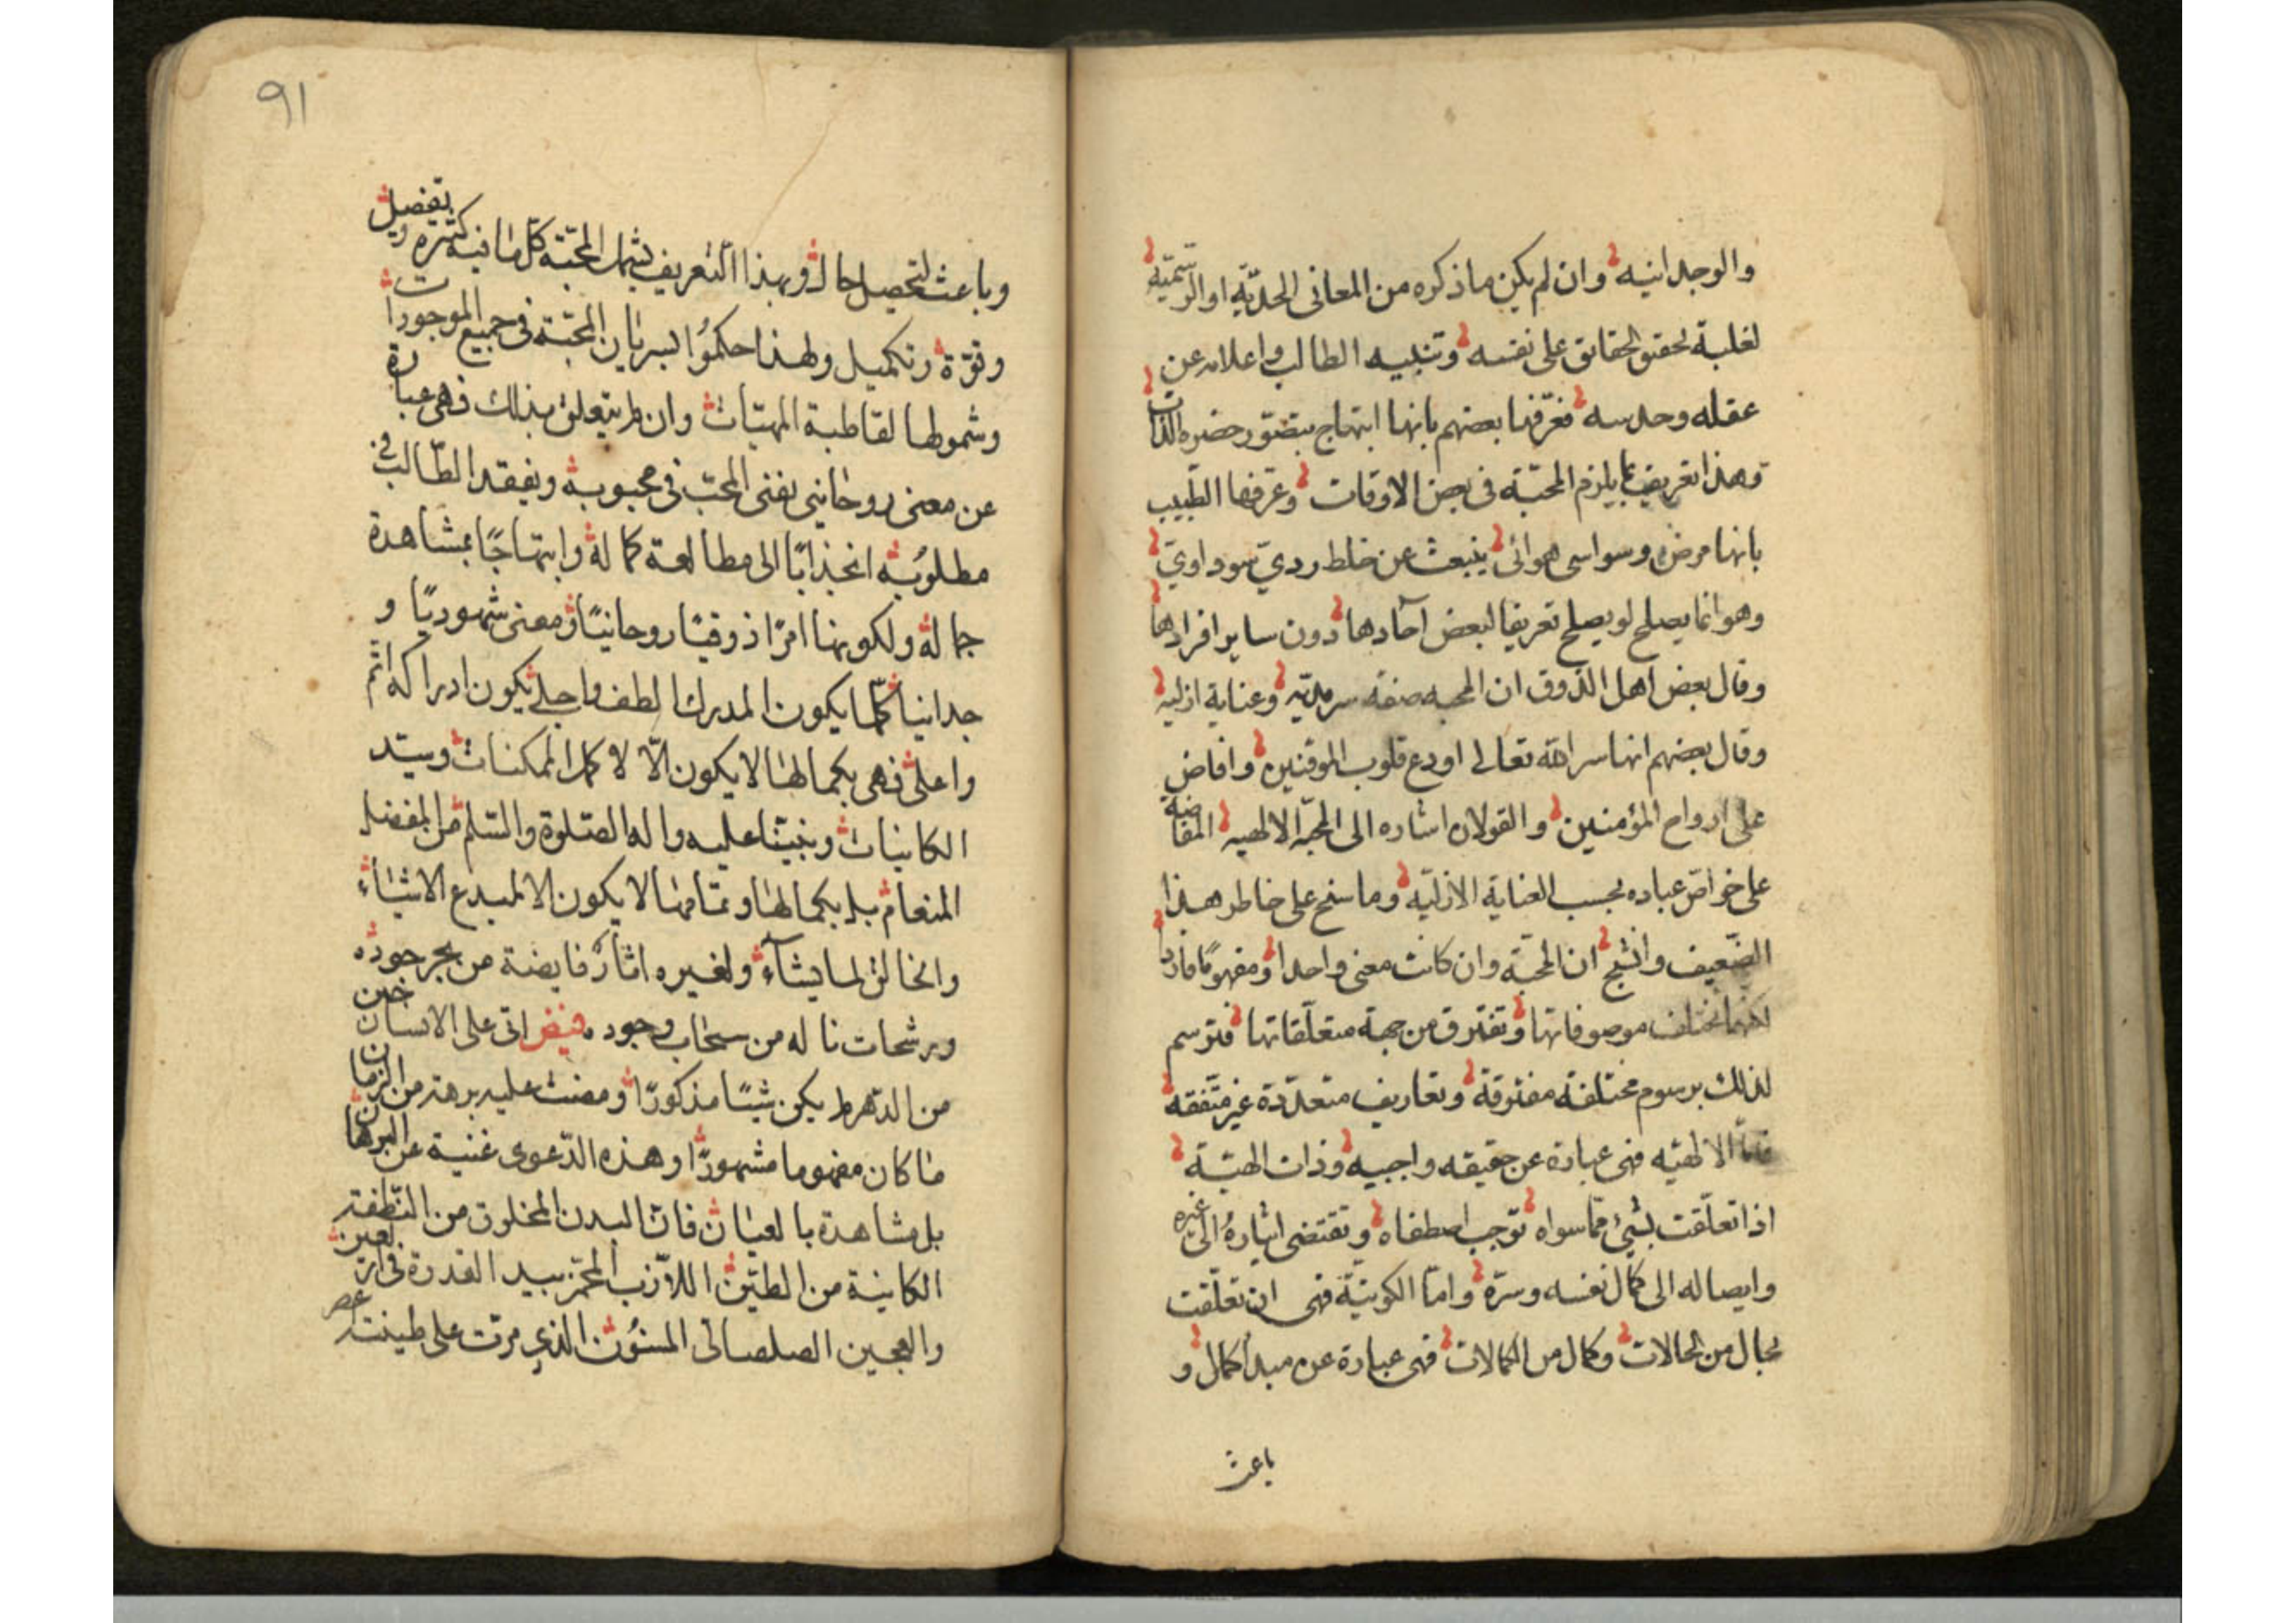 والوجدانيه وان لم يكن ما ذكره من المعانى الحدّيّة او الرّسميّه
لغلبة تحقيق الحقايق على نفسه وتنبيه الطالب واعلامه عن
عقله وحدسه فعرّفها بعضهم بانها ابتهاج بتصوّر حضره الذات
وهذا تعريف بما يلزم المحبّة فى بعض الاوقات وعرّفها الطّبيب
بانها مرض وسواسى هوائى ينبعث عن خلط رديّ سوداويّ
وهو انما يصلح لو يصلح تعريفا لبعض آحادها دون ساير افرادها
وقال بعض اهل الذّوق ان المحبه صفة سرمديّه وعناية ازليه
وقال بعضهم انها سر الله تعالى اودع قلوب الموقنين وافاض
على ارواح المؤمنين والقولان اشاره الى المحبّة الالهيه المفاضة
على خواصّ عباده بحسب العناية الازليّه وما سنح على خاطر هذا
الضّعيف وانتج ان المحبّة وان كانت معنى واحدا ومفهومًا فاردا
لكنها تختلف موصوفاتها وتفترق من جهة متعلّقاتها فترسم
لذلك برسوم مختلفة مفترقة وتعاريف متعدّدة غير متّفقه
فامّا الالهيّه فهى عبارة عن حقيقه واجبيه وذات الهيّة
اذا تعلّقت بشئ ممّا سواه توجب اصطفاه وتقتضى ايثارهُ الى غيره
وايصاله الى كمال نفسه وسرّه وامّا الكونيّة فهى ان تعلّقت
بحال من الحالات وكمال من الكمالات فهى عبارة عن مبدأ كمال و
باعث
٩١
وباعث لتحصيل حال وبهذا التعريف يشمل المحبّة كلّ ما فيه كثره وتفصيل
وقوّة وتكميل ولهذا حكمُوا بسريان المحبّة فى جميع الموجودات
وشمولها لقاطبة المهيّات وان لم يتعلق بذلك فهى عبارة
عن معنى روحانيى يفنى المحبّ فى محبوبه ويفقد الطّالب فى
مطلوُبه انجذابًا الى مطالعة كماله وابتهاجًا بمشاهدة
جماله ولكونها امرًا ذوقيًا روحانيًا ومعنى شهوديًا و
جدانيا كلّما يكون المدرك الطف واجلى يكون ادراكه اتم
واعلى فهى بكمالها لا يكون الّا لاكمل الممكنات وسيّد
الكاينات ونبيّنا عليه واله الصّلوة والسّلم من المفضل
المنعام بل بكمالها وتمامها لا يكون الا لمبدع الاشياء
والخالق لما يشآء ولغيره اثار فايضة من بحر جوده
وبرشحات ناله من سحاب وجوده فيض اتى على الانسان حين
من الدّهر لم يكن شيئًا مذكورًا ومضت عليه برهة من الزمان
ما كان مفهوما مشهودًا وهذه الدّعوى غنية عن البرهان
بل مشاهدة بالعيان فانّ البدن المخلوق من النّطفة
الكاينة من الطيّن اللاّزب المخمّر بيد القدرة فى اربعين
والعجين الصلصالى المسنُون الذي مرّت على طينته عصر